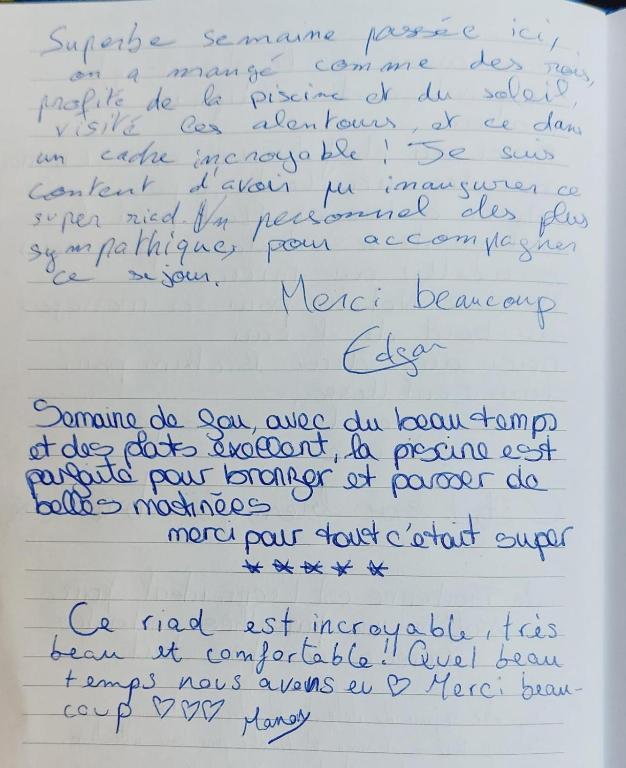 Superbe semaine passée ici,
on a mangé comme des rois,
profité de la piscine et du soleil,
visité les alentours, et ce dans
un cadre incroyable ! Je suis
content d'avoir pu inaugurer ce
super riad. Un personnel des plus
sympathiques pour accompagner
ce séjour.
Merci beaucoup
Edgar
Semaine de fou, avec du beau temps
et des plats exellent, la piscine est
parfaite pour bronzer et passer de
belles matinées
merci pour tout c'était super
★ ★ ★ ★ ★
Ce riad est incroyable, très
beau et comfortable !! Quel beau
temps nous avons eu ♡ Merci beau-
coup ♡♡♡